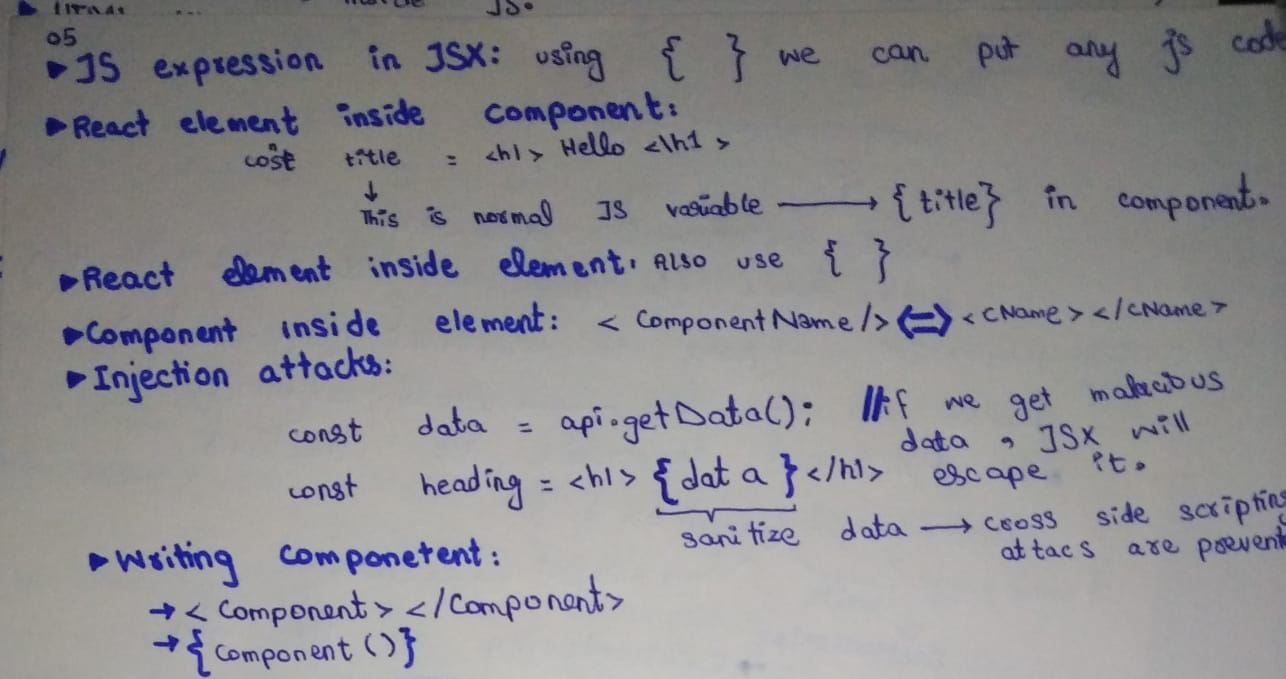 JS.
05
▸JS expression in JSX: using { } we can put any js code
▸React element inside component:
cosnt title = <h1> Hello <\h1>
↓
This is normal JS variable ⟶ {title} in component.
▸React element inside element. Also use { }
▸Component inside element: < ComponentName/> ⇔ <CName> </CName>
▸Injection attacks:
const data = api.getData(); // if we get malacious
data, JSX will
const heading = <h1> {data} </h1> escape it.
sanitize data → cross side scripting
attacs are prevent
▸Writing componetent:
→ < Component > </Component>
→ {Component ()}